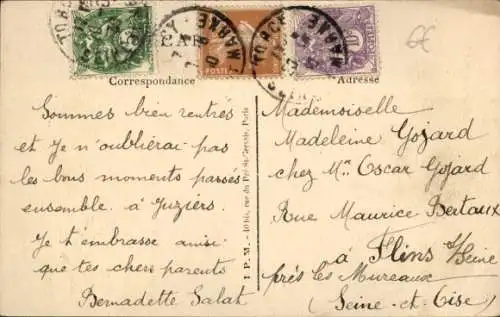 CAR
POSTE
Correspondance
Adresse
Sommes bien rentrés
et Je n'oublierai pas
les bons moments passés
ensemble à Juziers.
Je t'embrasse ainsi
que tes chers parents
Bernadette Salat
I P. M. - 10 bis, rue du Pré-St-Gervais, Paris
Mademoiselle
Madeleine Gojard
chez Mr Oscar Gojard
Rue Maurice Berteaux
à Flins s/Seine
près les Mureaux
(Seine-et-Oise)